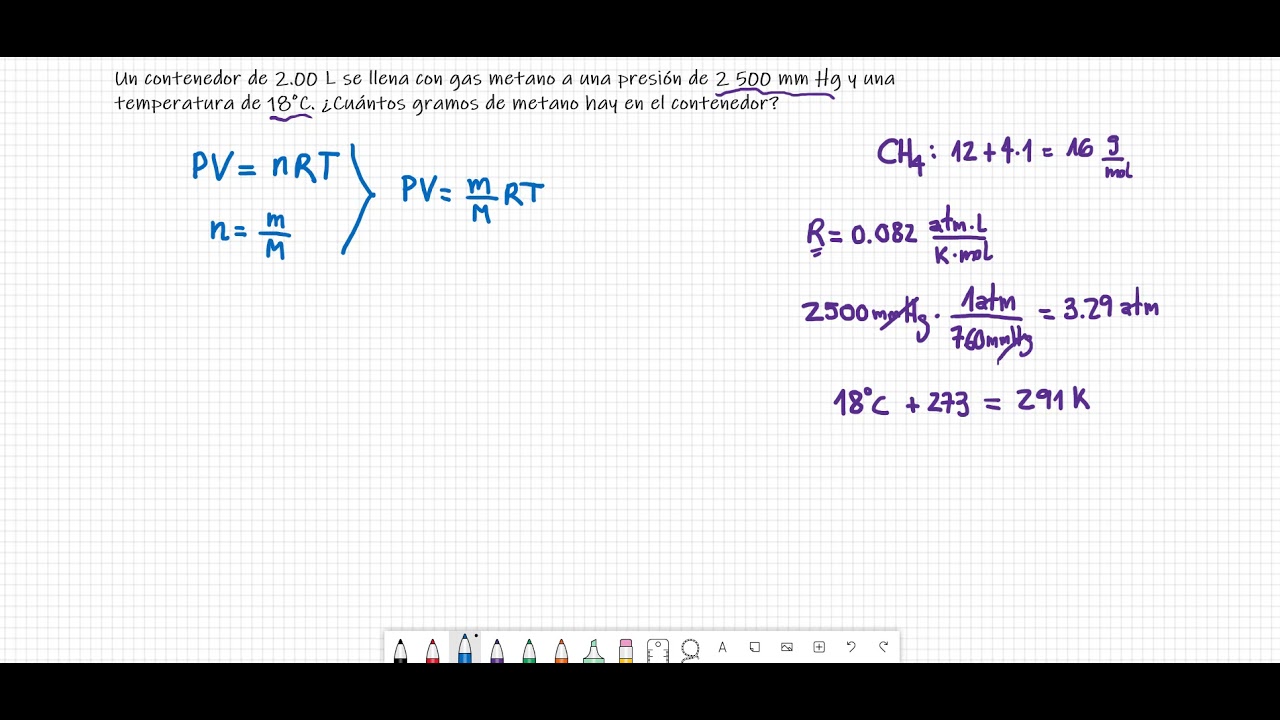 Un contenedor de 2.00 L se llena con gas metano a una presión de 2 500 mm Hg y una
temperatura de 18°C. ¿Cuántos gramos de metano hay en el contenedor?
PV = nRT
n = m/M
PV = m/M RT
CH₄: 12 + 4·1 = 16 g/mol
R = 0.082 atm·L/K·mol
2500 mmHg · 1 atm/760 mmHg = 3.29 atm
18°C + 273 = 291 K
A